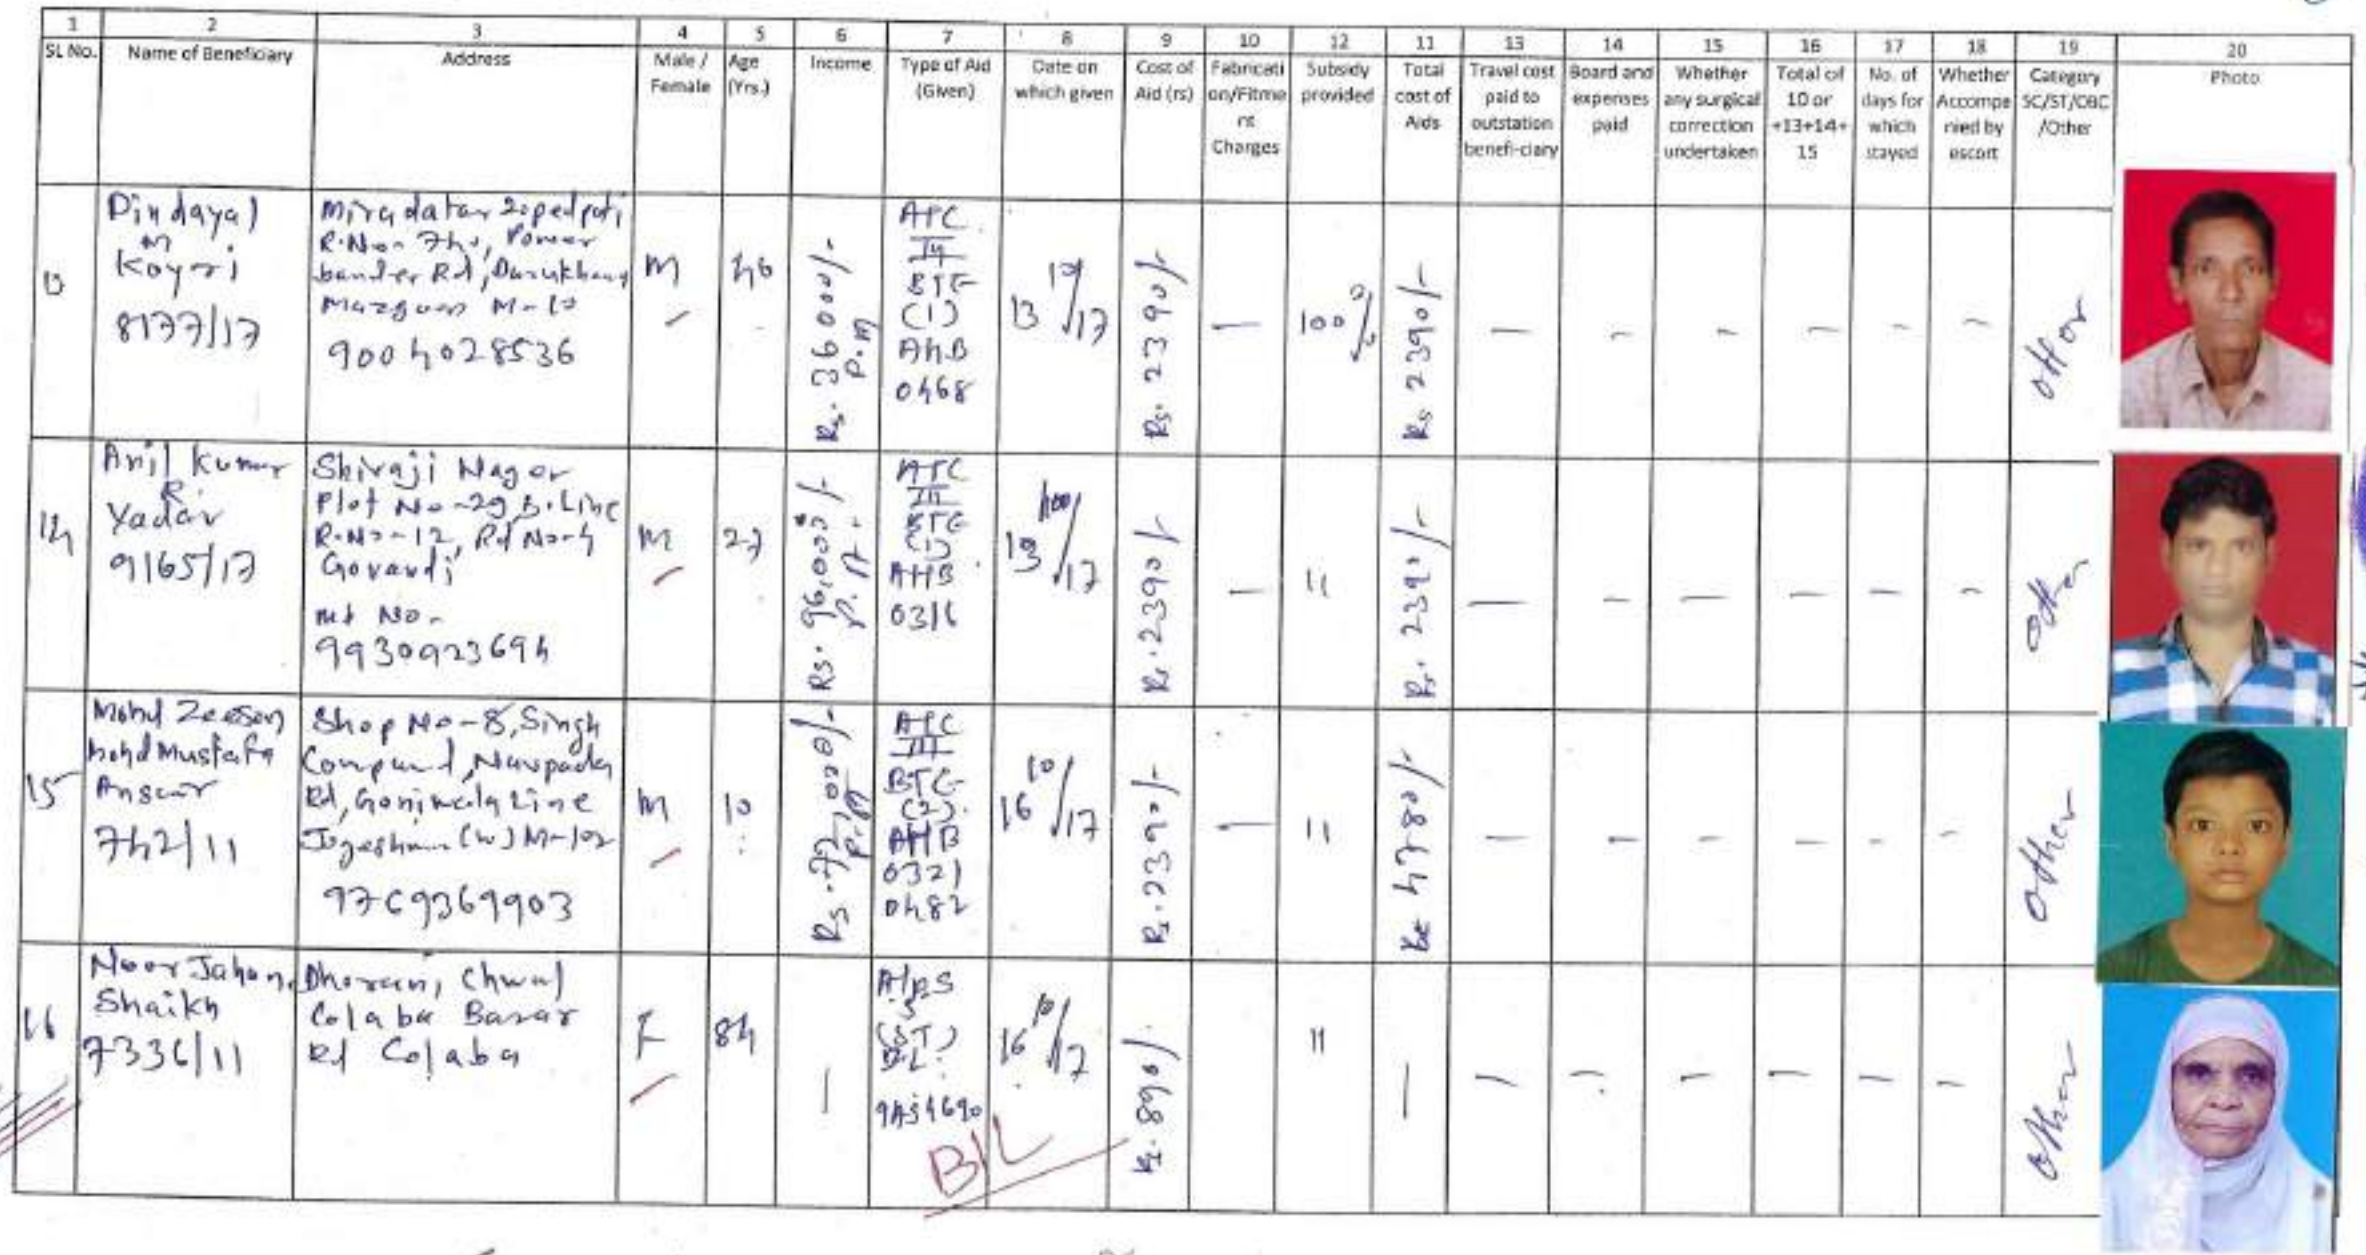 1 2 3 4 5 6 7 8 9 10 12 11 13 14 15 16 17 18 19 20
SL No. Name of Beneficiary Address Male / Female Age (Yrs.) Income Type of Aid (Given) Date on which given Cost of Aid (rs) Fabricati on/Fitme nt Charges Subsidy provided Total cost of Aids Travel cost paid to outstation benefi-ciary Board and expenses paid Whether any surgical correction undertaken Total of 10 or +13+14+ 15 No. of days for which stayed Whether Accompa nied by escort Category SC/ST/OBC /Other Photo
13
Dindayal
Koyri
8177/17
Bander Rd, Darukhana
Mazgaon M-10
9004028536
M
46
Rs. 36000/-
P.M
BTE
(1)
A4B
0468
13/10/17
Rs. 2390/-
—
100%
Rs 2390/-
— — — — — —
other
14
Anil Kumar
R.
Yadav
9165/17
Shivaji Nagar
Plot No-29, B. Line
R.No-12, Rd No-4
Govandi
No.
9930923694
M
27
Rs. 96,000/-
P.A.
BTE
(1)
0316
13/10/17
Rs. 2390/-
—
11
Rs. 2390/-
— — — — — —
other
15
Mohd Zeeson
Mohd Mustafa
Ansar
742/11
Shop No-8, Singh
Compund, Navpada
Jogeshwari (W) M-102
9769369903
M
10
Rs. 72,000/-
BTE
(2)
0321
0482
16/10/17
Rs. 2390/-
—
11
Rs 4780/-
— — — — — —
other
16
Noor Jahan
Shaikh
7336/11
Chwal
Colaba Bazar
Rd Colaba
F
84
—
(ST)
16/10/17
Rs. 890/-
11
—
— — — — — —
other